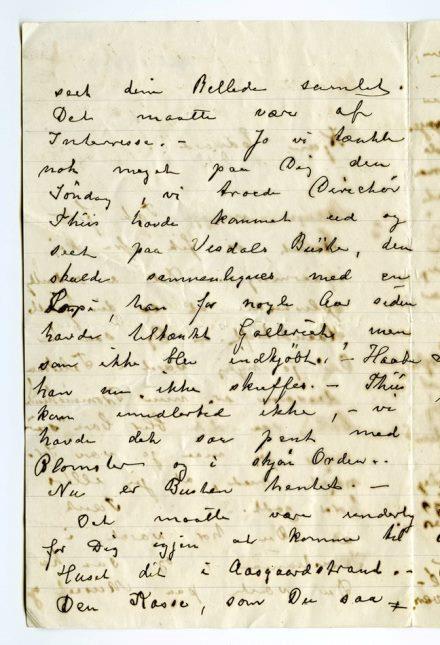 seet dine Billeder samlet.
Det maatte være af
Interresse. – Jo vi tænkte
nok meget paa Dig den
Söndag, vi troede Direktör
Thiis havde kommet ud og
seet paa Visdals Büste, den
skulde sammenlignes med en
han for nogle Aar siden
havde tiltænkt Galleriet men
som ikke blev indkjöbt. – Haabe
han nu ikke skuffes. – Thiis
kom imidlertid ikke, – vi
havde det saa pent med
Blomster og i skjön Orden..
Nu er Busten hentet. –
Det maatte være underlig
for Dig igjen at komme til
Huset dit i Aasgaardstrand. –
Den Kasse, som Du saa